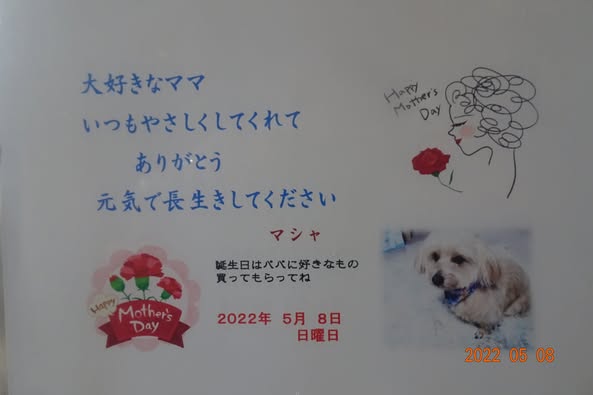 大好きなママ
いつもやさしくしてくれて
ありがとう
元気で長生きしてください
マシャ
誕生日はパパに好きなもの
買ってもらってね
2022年 5月 8日
日曜日
Happy
Mother's
Day
Happy
Mother's
Day
2022 05 08